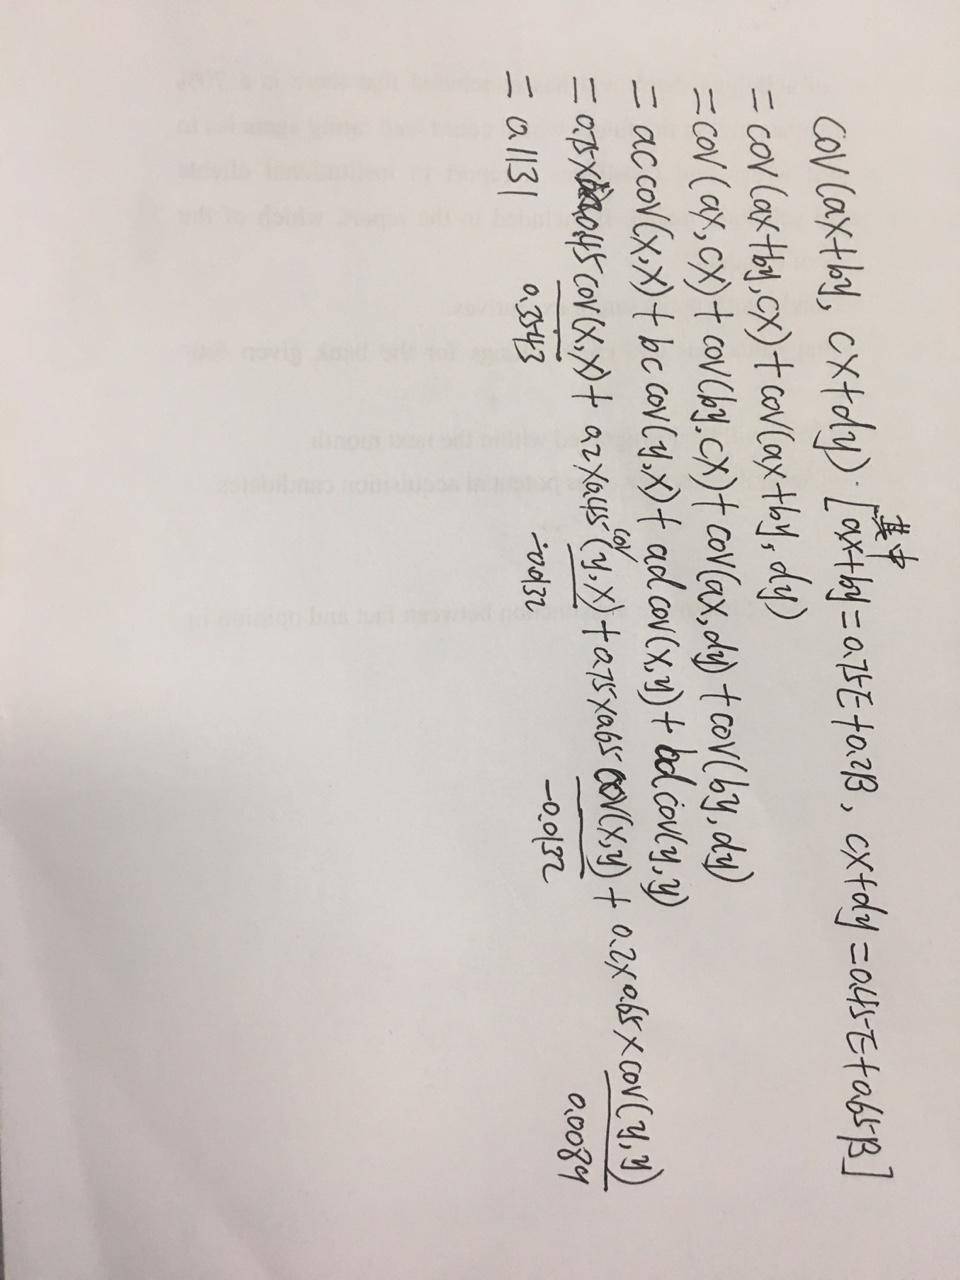 cov(ax+by, cx+dy). [其中 ax+by=0.75E+0.2B, cx+dy=0.45E+0.65B]
=cov(ax+by, cx)+cov(ax+by, dy)
=cov(ax, cx)+cov(by, cx)+cov(ax, dy)+cov(by, dy)
=ac cov(x,x)+bc cov(y,x)+ad cov(x,y)+bd cov(y,y)
=0.75×0.45cov(x,x)+0.2×0.45cov(y,x)+0.75×0.65cov(x,y)+0.2×0.65×cov(y,y)
0.3543 -0.0132 -0.0132 0.0084
=0.1131